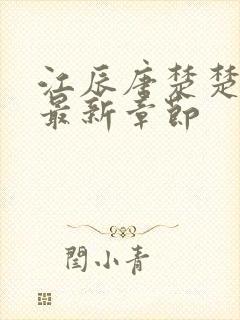 江辰唐楚楚
最新章节
闫小青